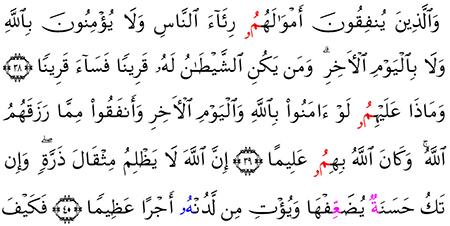 وَٱلَّذِينَ يُنفِقُونَ أَمْوَٰلَهُمُۥ رِئَآءَ ٱلنَّاسِ وَلَا يُؤْمِنُونَ بِٱللَّهِ
وَلَا بِٱلْيَوْمِ ٱلْأَخِرِ ۗ وَمَن يَكُنِ ٱلشَّيْطَٰنُ لَهُۥ قَرِينًا فَسَآءَ قَرِينًا ٣٨
وَمَاذَا عَلَيْهِمُۥ لَوْ ءَامَنُوا۟ بِٱللَّهِ وَٱلْيَوْمِ ٱلْأَخِرِ وَأَنفَقُوا۟ مِمَّا رَزَقَهُمُ
ٱللَّهُ ۚ وَكَانَ ٱللَّهُ بِهِمُۥ عَلِيمًا ٣٩ إِنَّ ٱللَّهَ لَا يَظْلِمُ مِثْقَالَ ذَرَّةٍ ۖ وَإِن
تَكُ حَسَنَةٌ يُضَعِّفْهَا وَيُؤْتِ مِن لَّدُنْهُۥ أَجْرًا عَظِيمًا ٤٠ فَكَيْفَ